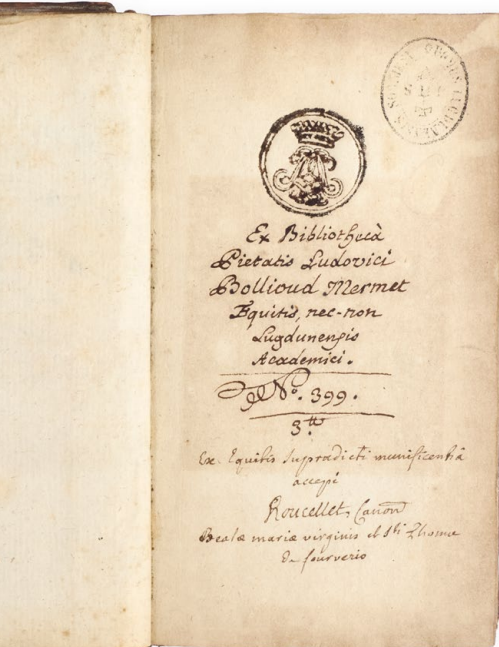 Ex Bibliothecâ
Pietatis Ludovici
Bollioud Mermet
Equitis, nec-non
Lugdunensis
Academici.
N.º 399.
3.tt
Ex Equitis supradicti munificentiâ
accepi
Roucellet, Canon
Beatæ mariæ virginis et Sti Thomæ
de fourverio